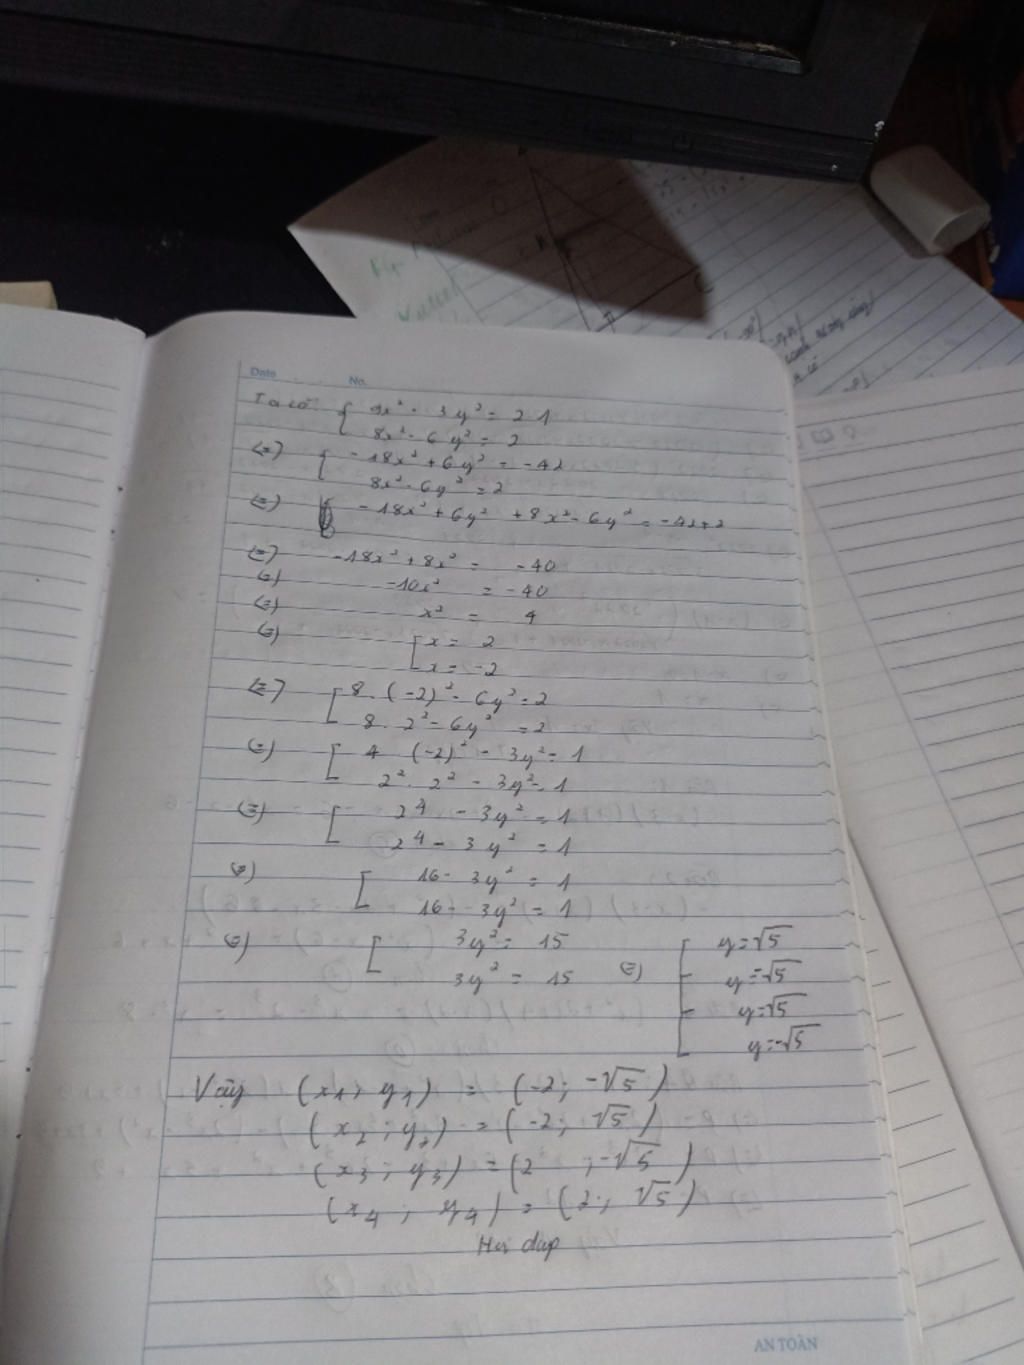 Date No.
Ta có: { 9x² - 3y² = 21
8x² - 6y² = 2
(=) { -18x² + 6y² = -42
8x² - 6y² = 2
(=) -18x² + 6y² + 8x² - 6y² = -42+2
(=) -18x² + 8x² = -40
(=) -10x² = -40
(=) x² = 4
(=) [ x = 2
x = -2
(=) [ 8 . (-2)² - 6y² = 2
8 . 2² - 6y² = 2
(=) [ 4 (-2)² - 3y² = 1
2² . 2² - 3y² = 1
(=) [ 2⁴ - 3y² = 1
2⁴ - 3y² = 1
(=) [ 16 - 3y² = 1
16 - 3y² = 1
(=) [ 3y² = 15
3y² = 15 (=) [ y = √5
y = -√5
y = √5
y = -√5
Vậy (x1; y1) = (-2; -√5)
(x2; y2) = (-2; √5)
(x3; y3) = (2; -√5)
(x4; y4) = (2; √5)
AN TOÀN